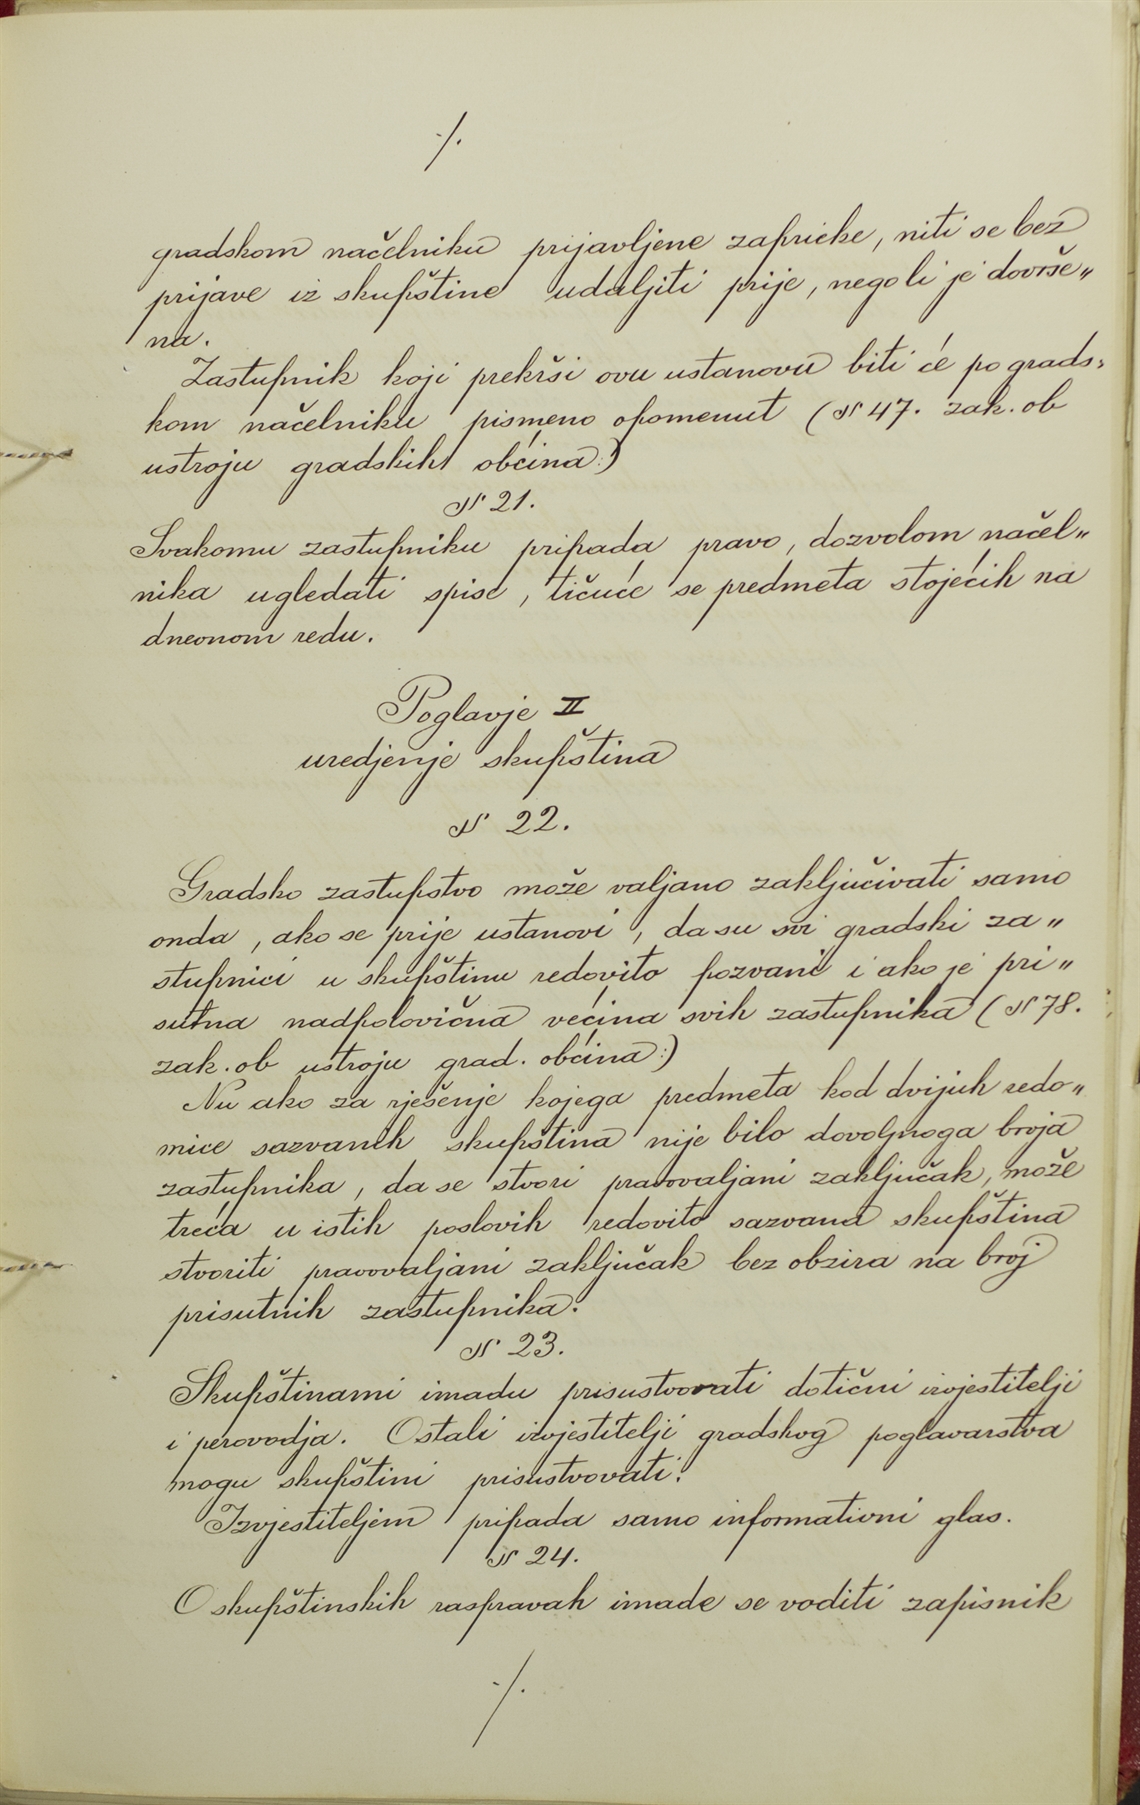 ·/.
gradskom načelniku prijavljene zapricke, niti se bez
prijave iz skupštine udaljiti prije, nego li je dovrše„
na.
Zastupnik koji prekrši ovu ustanovu biti će po grads„
kom načelniku pismeno opomenut (§ 47. zak. ob
ustroju gradskih obćina:)
§ 21.
Svakomu zastupniku pripada pravo, dozvolom načel„
nika ugledati spise, tičuće se predmeta stojećih na
dneonom redu.
Poglavje II
uredjenje skupština
§ 22.
Gradsko zastupstvo može valjano zaključivati samo
onda, ako se prije ustanovi, da su svi gradski za„
stupnici u skupštinu redovito pozvani i ako je pri„
sutna nadpolovična većina svih zastupnika (§ 78.
zak. ob ustroju grad. obćina:)
Nu ako za rješenje kojega predmeta kod dvijuh redo„
mice sazvanih skupština nije bilo dovoljnoga broja
zastupnika, da se stvori pravovaljani zaključak, može
treća u istih poslovih redovito sazvana skupština
stvoriti pravovaljani zaključak bez obzira na broj
prisutnih zastupnika.
§ 23.
Skupštinami imadu prisustvovati dotični izvjestitelji
i perovodja. Ostali izvjestitelji gradskog poglavarstva
mogu skupštini prisustvovati.
Izvjestiteljem pripada samo informativni glas.
§ 24.
O skupštinskih raspravah imade se voditi zapisnik
·/.